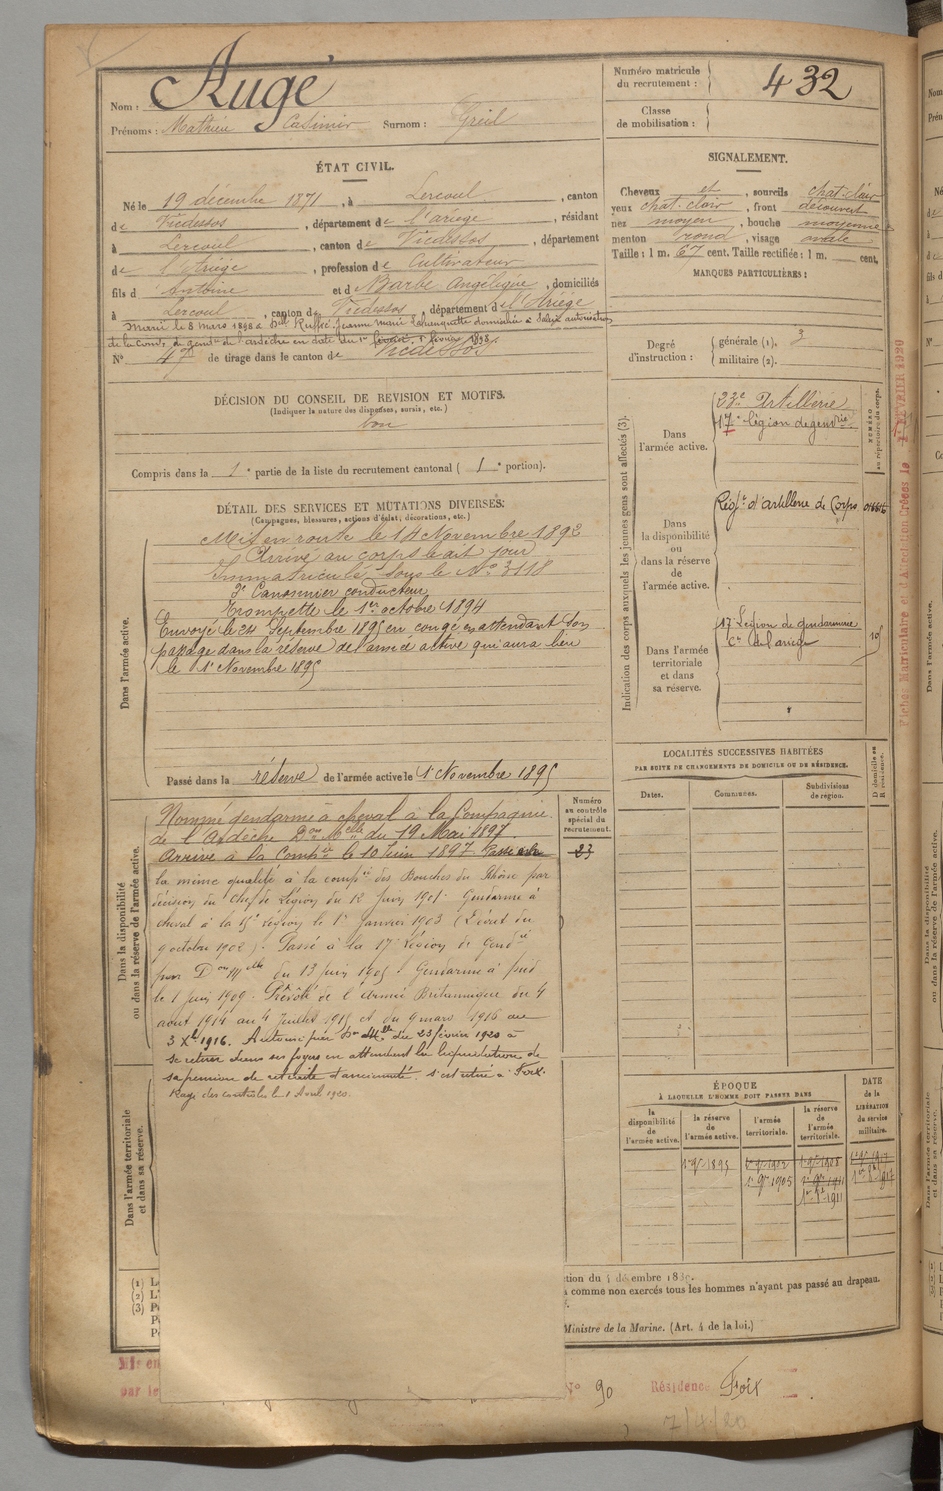 Nom : Augé
Prénoms : Mathieu Casimir Surnom : Greil
Numéro matricule du recrutement : 432
Classe de mobilisation :
ÉTAT CIVIL.
Né le 19 décembre 1871, à Lercoul, canton
de Vicdessos, département de l'ariège, résidant
à Lercoul, canton de Vicdessos, département
de l'Ariège, profession de Cultivateur
fils d Antoine et d Barbe Angélique, domiciliés
à Lercoul, canton de Vicdessos, département de l'Ariège
Marié le 8 mars 1898 à Dlle Ruffié Jeanne Marie domiciliée à autorisation
de la Comp. de gendie de l'ardèche en date du 1er février 1898.
N° 47 de tirage dans le canton de Vicdessos
SIGNALEMENT.
Cheveux et, sourcils chat. clair
yeux chat. clair, front découvert
nez moyen, bouche moyenne
menton rond, visage ovale
Taille : 1 m. 67 cent. Taille rectifiée : 1 m. cent.
MARQUES PARTICULIÈRES :
Degré d'instruction : générale (1). 3
militaire (2).
DÉCISION DU CONSEIL DE REVISION ET MOTIFS.
(Indiquer la nature des dispenses, sursis, etc.)
bon
Compris dans la 1e partie de la liste du recrutement cantonal (1e portion).
DÉTAIL DES SERVICES ET MUTATIONS DIVERSES:
(Campagnes, blessures, actions d'éclat, décorations, etc.)
Dans l'armée active.
Mis en route le 14 Novembre 1892
Arrivé au corps le dit jour
Immatriculé sous le No 3118
2e Canonnier conducteur
Trompette le 1er octobre 1894
Envoyé le 24 Septembre 1895 en congé en attendant son
passage dans la réserve de l'armée active qui aura lieu
le 1er Novembre 1895
Passé dans la réserve de l'armée active le 1er Novembre 1895
Indication des corps auxquels les jeunes gens sont affectés (3).
NUMÉRO au répertoire du corps.
Dans l'armée active.
23e Artillerie
17e légion de gendrie
Dans la disponibilité ou dans la réserve de l'armée active.
Régt d'artillerie de Corps
Dans l'armée territoriale et dans sa réserve.
17 Légion de gendarmerie
Cie de l'ariège
Fiches Matriculaire et d'Affectation Créées le FEVRIER 1920
Dans la disponibilité ou dans la réserve de l'armée active.
Numéro au contrôle spécial du recrutement.
23
Nommé gendarme à cheval à la Compagnie
de l'Ardèche Don Melle du 19 Mai 1897.
Arrivé à la Compie le 10 Juin 1897 Passé
la même qualité à la compie des Bouches du Rhône par
décision du Chef de Légion du 12 Juin 1901. Gendarme à
cheval à la 15e Légion le 1er Janvier 1903 (Décret du
9 octobre 1902). Passé à la 17e Légion de Gendie
par Don Melle du 13 juin 1905. Gendarme à pied
le 1 Juin 1909. Prévôté de l'Armée Britannique du 4
août 1914 au 4 Juillet 1915 et du 9 mars 1916 au
3 Xbre 1916. Autorisé par Don Mlle du 23 février 1920 à
se retirer dans ses foyers en attendant la liquidation de
sa pension de retraite d'ancienneté. S'est retiré à Foix.
Rayé des contrôles le 1 Avril 1920.
LOCALITÉS SUCCESSIVES HABITÉES
PAR SUITE DE CHANGEMENTS DE DOMICILE OU DE RÉSIDENCE.
Dates. Communes. Subdivisions de région. D domicile ou R résidence.
Dans l'armée territoriale et dans sa réserve.
ÉPOQUE
À LAQUELLE L'HOMME DOIT PASSER DANS
DATE de la LIBÉRATION du service militaire.
la disponibilité de l'armée active.
la réserve de l'armée active.
l'armée territoriale.
la réserve de l'armée territoriale.
1er 9bre 1895 1er 9bre 1902 1er 9bre 1908
1er 9bre 1905 1er 9bre 1911
(1)
(2)
(3)
comme non exercés tous les hommes n'ayant pas passé au drapeau.
Ministre de la Marine. (Art. 4 de la loi.)
N° 90 Résidence Foix
7/4/20